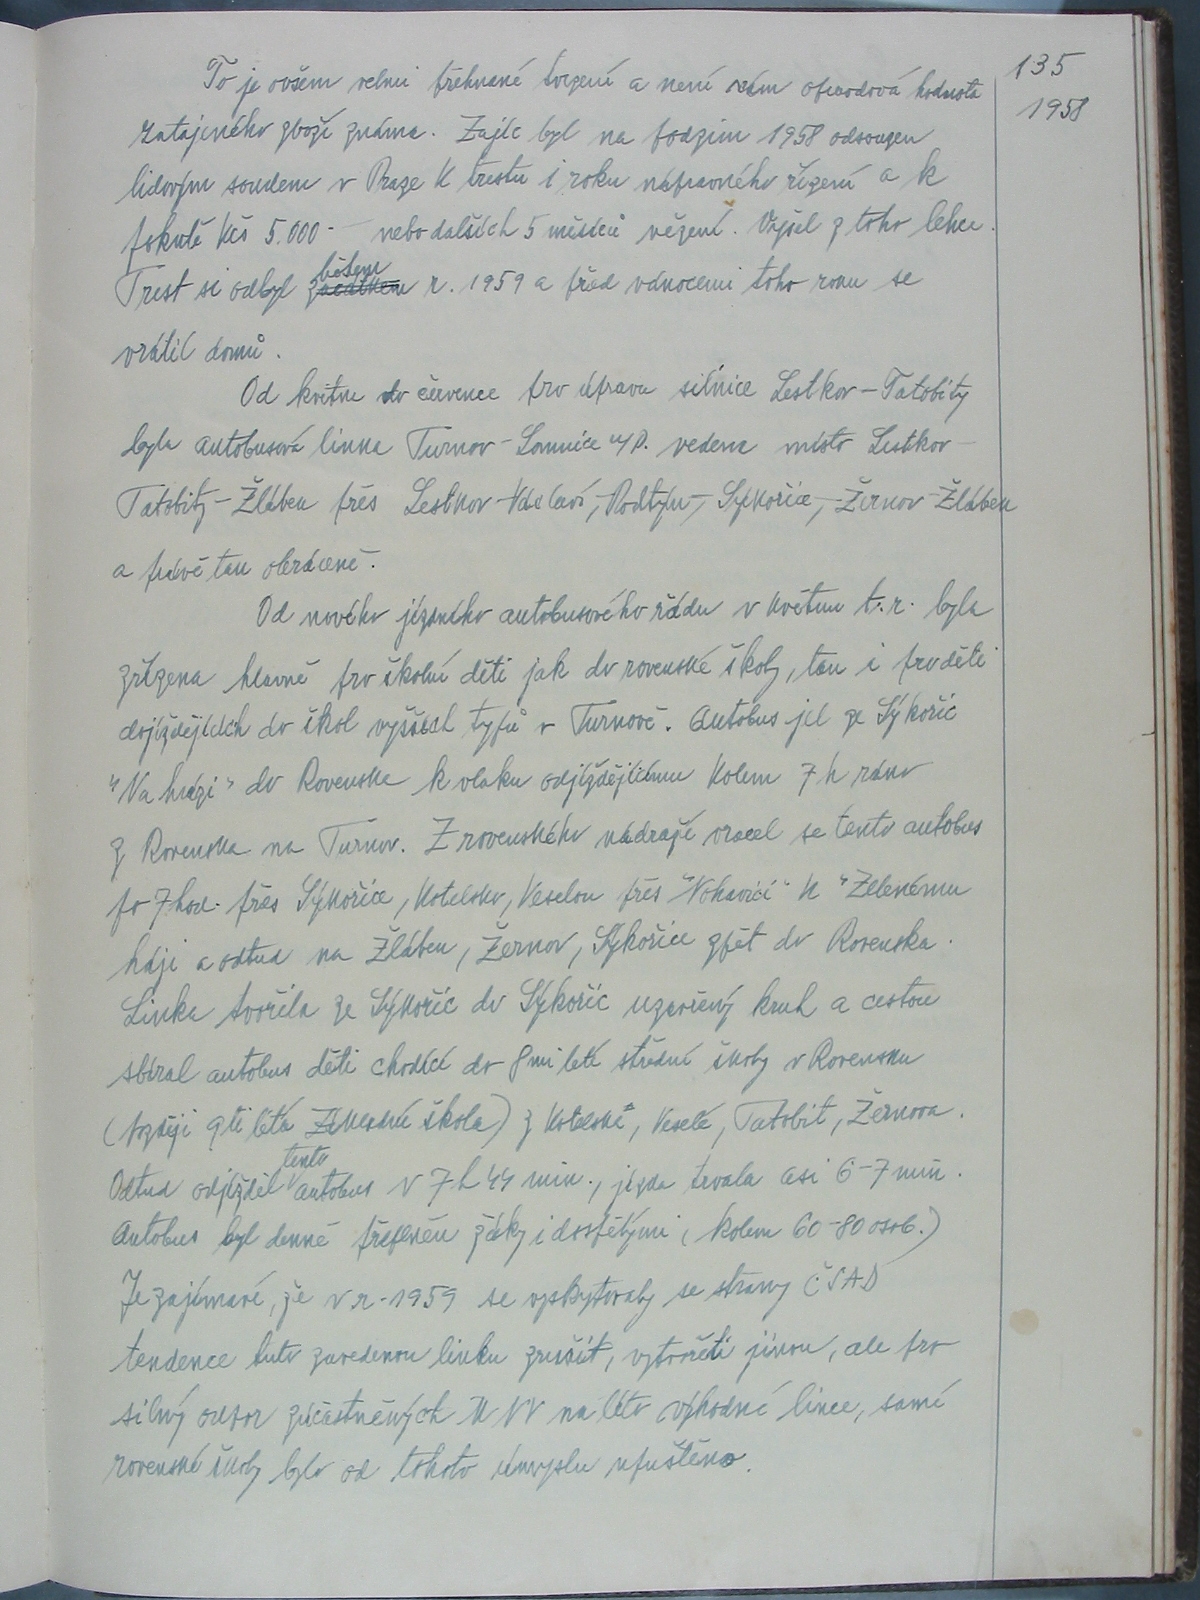 135
1958
To je ovšem velmi přehnané tvrzení a není nám opravdová hodnota
zatajeného zboží známa. Zajíc byl na podzim 1958 odsouzen
lidovým soudem v Praze k trestu 1 roku nápravného řízení a k
pokutě Kčs 5.000- nebo dalších 5 měsíců vězení. Vyšel z toho lehce.
během
Trest si odbyl začátkem r. 1959 a před vánocemi toho roku se
vrátil domů.
Od května do července pro úpravu silnice Lestkov-Tatobity
byla autobusová linka Turnov-Lomnice n/P. vedena místo Lestkov-
Tatobity-Žlábek přes Lestkov-Václaví,-Rodtýn,-Sýkořice,-Žernov-Žlábek
a právě tak obráceně.
Od nového jízdního autobusového řádu v květnu t.r. byla
zřízena hlavně pro školní děti jak do rovenské školy, tak i pro děti
dojíždějících do škol vyšších typů v Turnově. Autobus jel ze Sýkořic
"Na hrázi" do Rovenska k vlaku odjíždějícímu kolem 7 h ráno
z Rovenska na Turnov. Z rovenského nádraží vracel se tento autobus
po 7 hod. přes Sýkořice, Kotelsko, Veselou přes "Nohavici" k "Zelenému
háji a odtud na Žlábek, Žernov, Sýkořice zpět do Rovenska.
Linka tvořila ze Sýkořic do Sýkořic uzavřený kruh a cestou
sbíral autobus děti chodící do 8mi leté střední školy v Rovensku
(později 9ti letá Základní škola) z Kotelska, Veselé, Tatobit, Žernova.
tento
Odtud odjížděl autobus v 7 h 44 min., jízda trvala asi 6-7 min.
Autobus byl denně přeplněn žáky i dospělými (kolem 60-80 osob.)
Je zajímavé, že v r. 1959 se vyskytovaly se strany ČSAD
tendence tuto zavedenou linku zrušit, vytvořiti jinou, ale pro
silný odpor zúčastněných MNV na této výhodné lince, samé
rovenské školy bylo od tohoto úmyslu upuštěno.